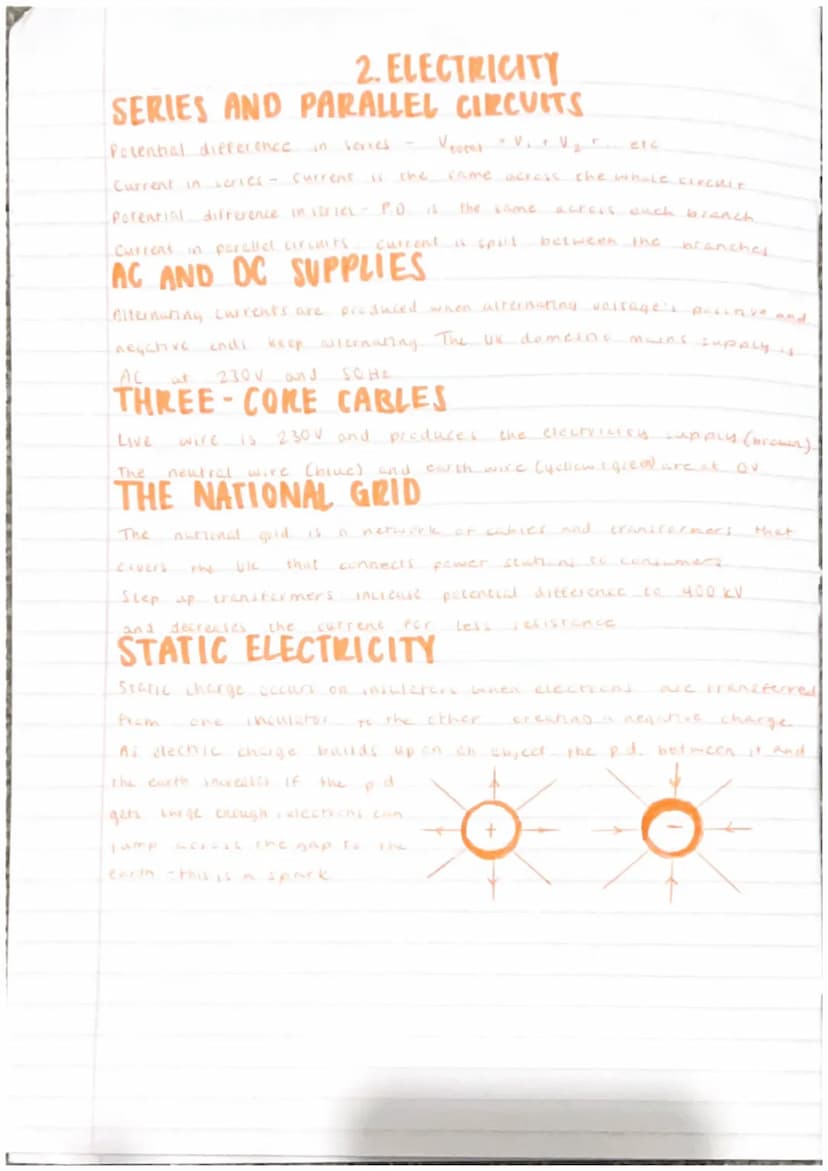 2. ELECTRICITY
SERIES AND PARALLEL CIRCUITS
Potential difference in series - Vtotal = V1 + V2 + .. etc
Current in series - Current is the same across the whole circuit
Potential difference in series - P.D is the same across each branch
Current in parallel circuits - current is split between the branches
AC AND DC SUPPLIES
Alternating currents are produced when alternating voltage's positive and
negative ends keep alternating. The UK domestic mains supply is
AC at 230V and 50Hz
THREE-CORE CABLES
Live wire is 230V and produces the electricity supply (brown).
The neutral wire (blue) and earth wire (yellow + green) are at 0V
THE NATIONAL GRID
The national grid is a network of cables and transformers that
covers the UK that connects power stations to consumers
Step up transformers increase potential difference to 400 kV
and decreases the current for less resistance
STATIC ELECTRICITY
Static charge occurs on insulators when electrons are transferred
from one insulator to the other creating a negative charge.
As electric charge builds up on an object the p.d. between it and
the earth increases if the p.d
gets large enough, electrons can
jump across the gap to the
earth - this is a spark
+ -